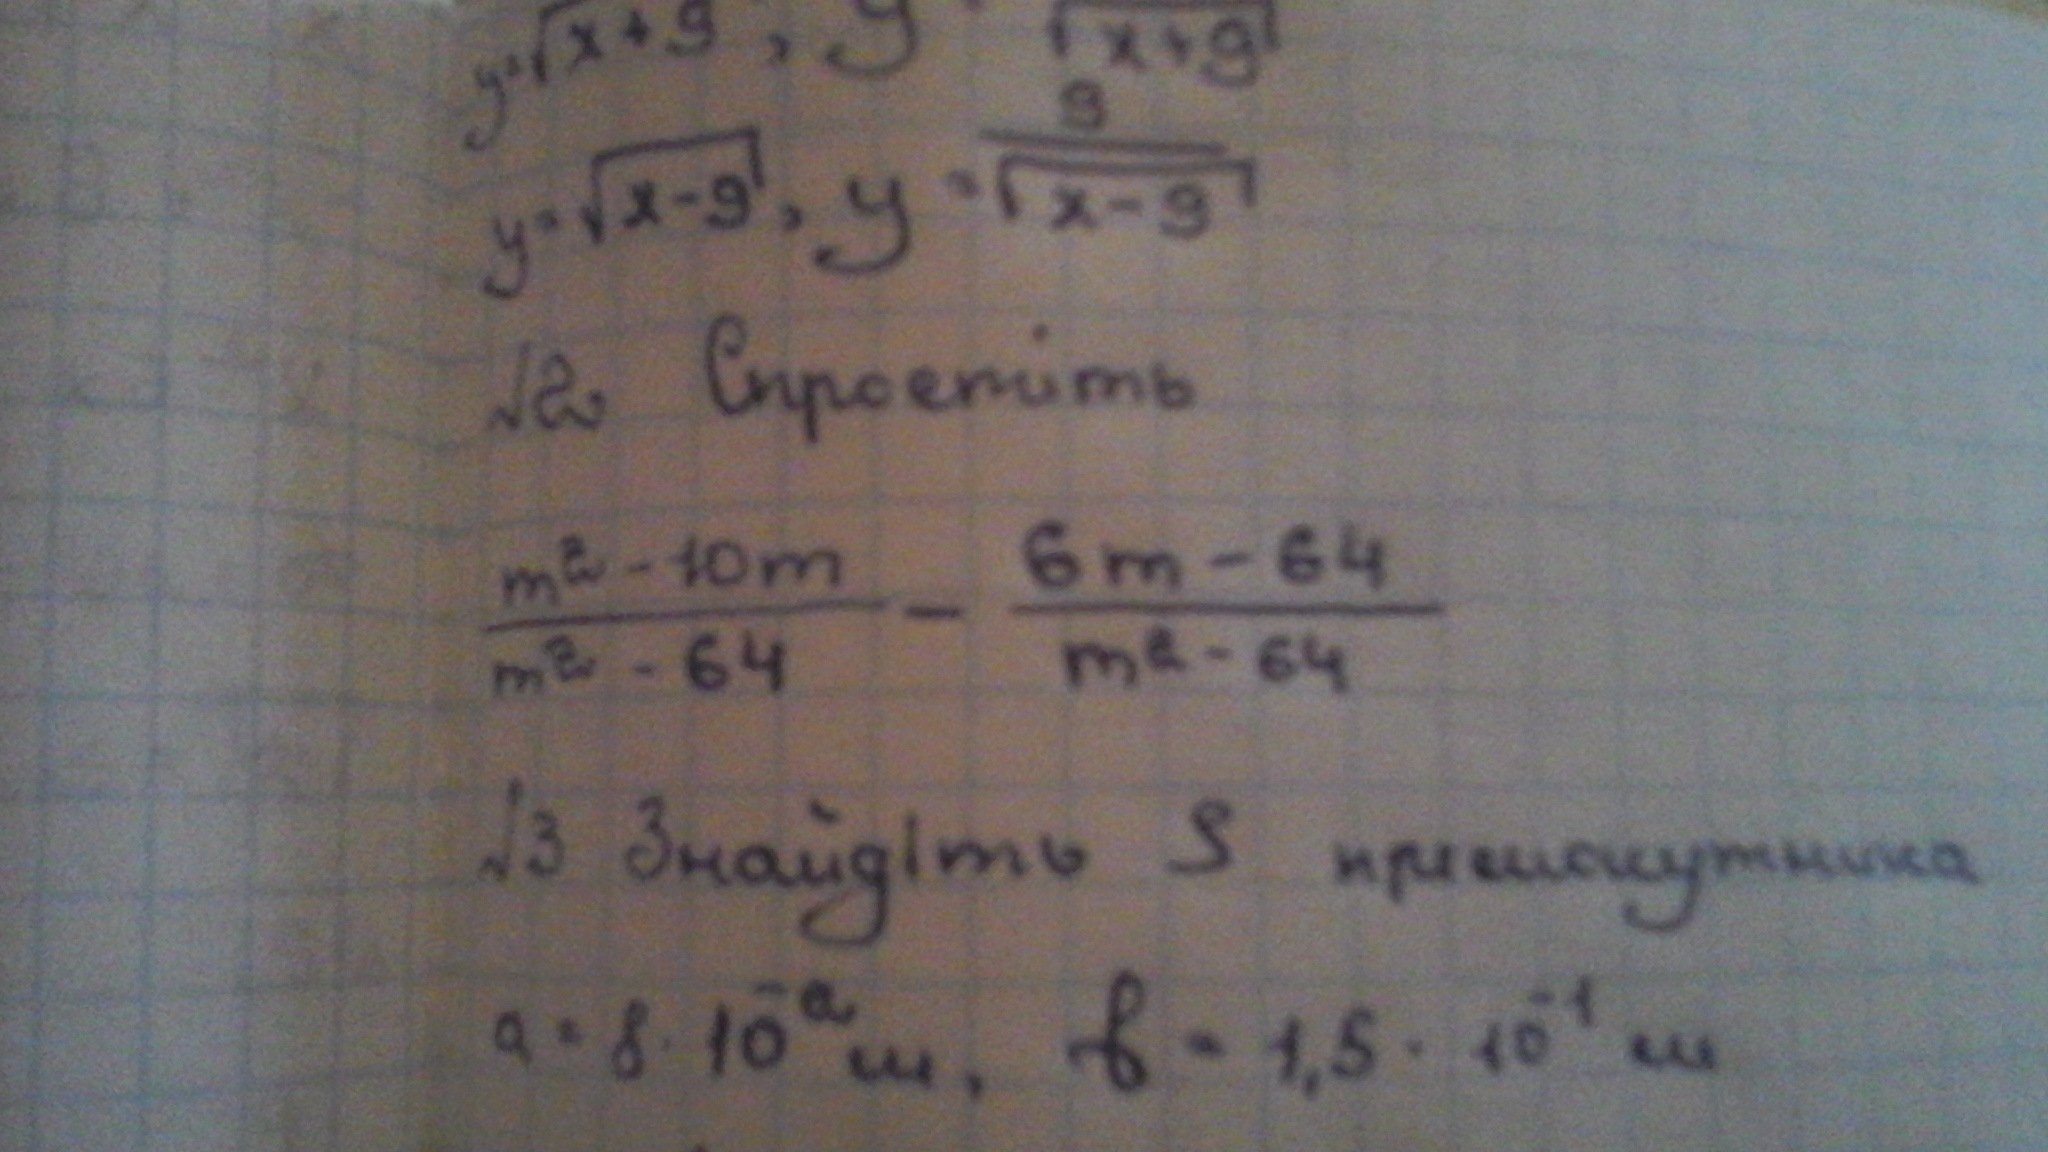 y=√x+9, y = √x+9
y=√x-9, y = 9/√x-9
№2 Спростіть
m²-10m/m²-64 - 6m-64/m²-64
№3 Знайдіть S прямокутника
a = 8·10⁻² м, b = 1,5·10⁻¹ м